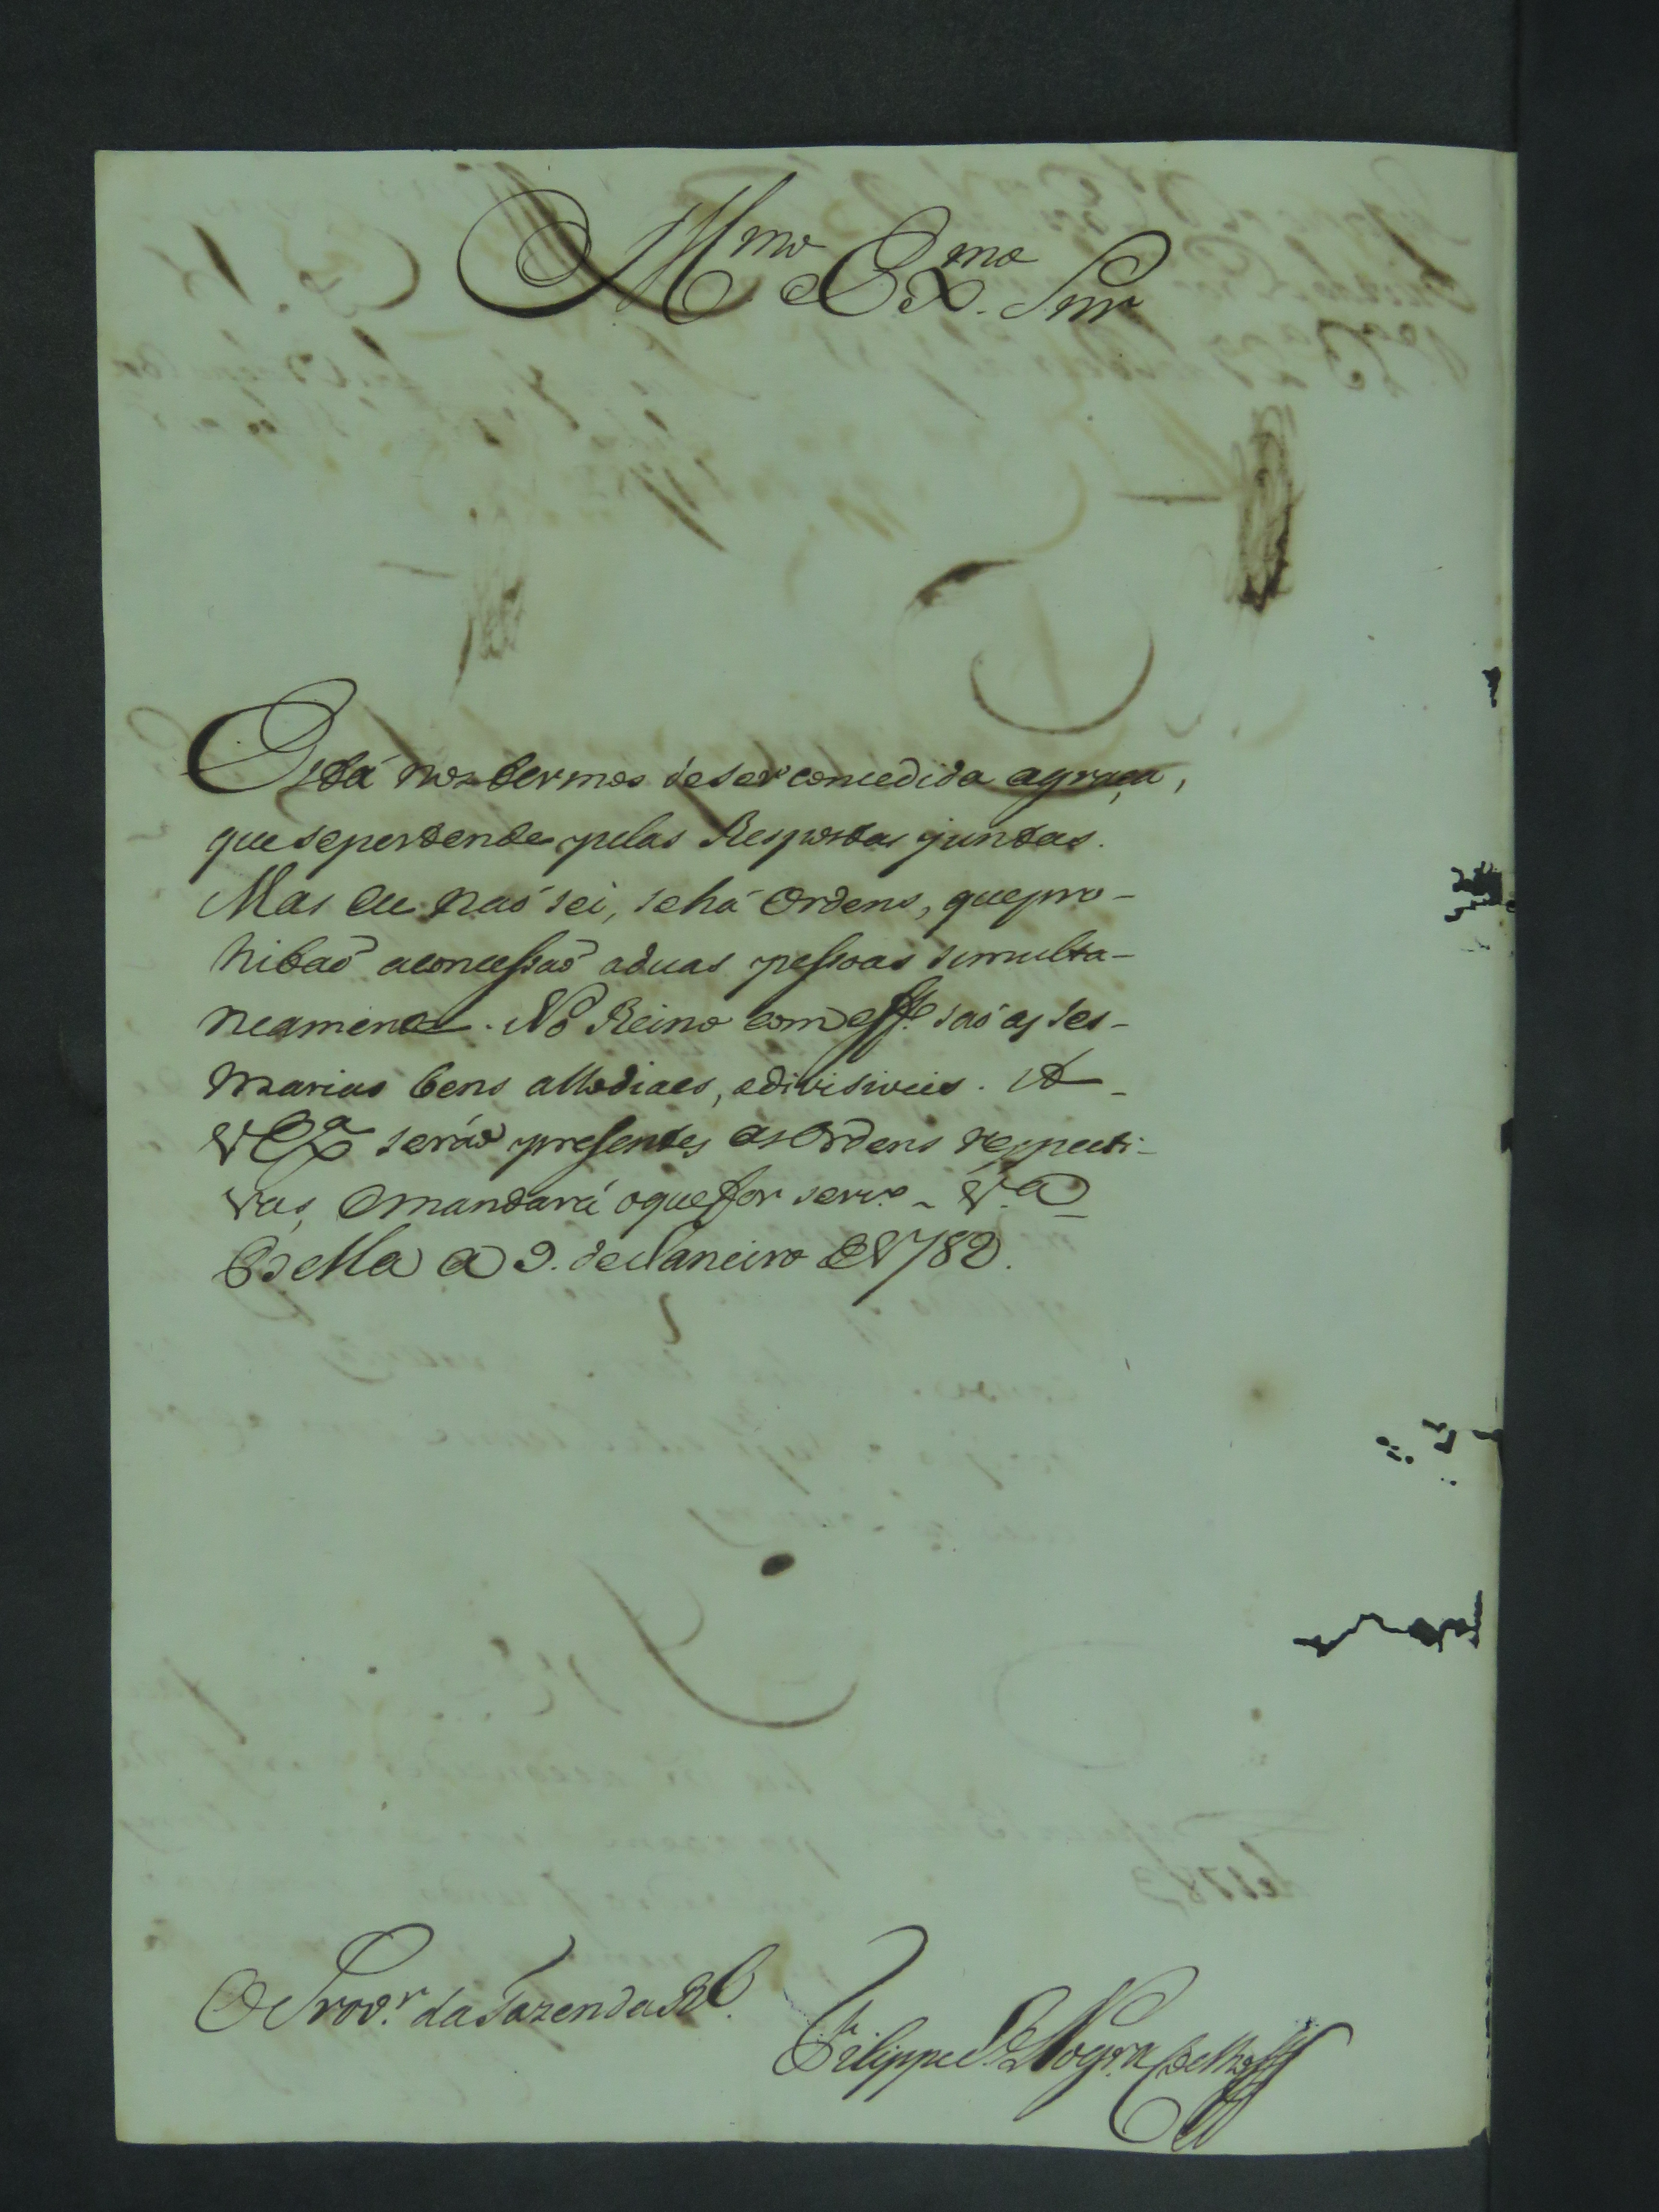 Illmo. e Exmo. Snr.
Está nos termos de ser concedida a graça,
que se pertende pelas Respostas juntas.
Mas eu naõ sei, se há Ordens, que pro-
hibaõ a concessaõ a duas pessoas simulta-
neamente. No Reino com effo. saõ as ses-
marias bens allodiaes, e divisiveis. A
VEXa. seráõ presentes as Ordens respecti-
vas, e mandará o que for servo. - Va.
Bella a 9. de Janeiro de 1782.
O Provor. da Fazenda Rl.
Filippe Je. Nogra. Coelho